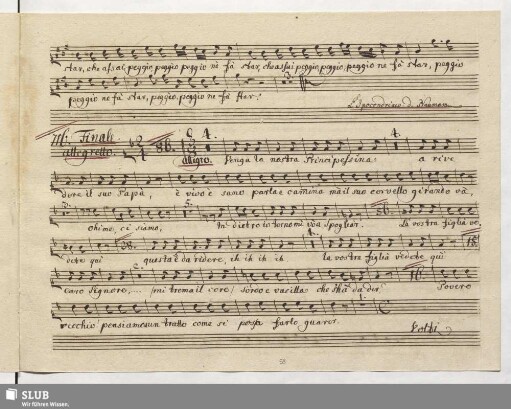 star, che assai, peggio, peggio peggio ne fà star, che assai peggio, peggio, peggio ne fà star, peggio
peggio ne fà star, peggio, peggio ne fà star.
L'Ipocondriaco di Naumann
Finale
allegretto. 86. 4.
allegro. Venga la nostra Principessina a rive
dere il suo Papà, è vivo e sano parla e camina ma il suo cervello girando và,
Ohimè, ci siamo, in dietro io torno mi spogliar. 56. La vostra figlia ve
dete quì 28. questa è da ridere, ih ih ih ih 4. la vostra figlia vedete quì 15.
Caro Signore, .... mi trema il core 16. Povero
vecchio pensiamo un tratto come si possa farlo guarir
SLUB
Wir führen Wissen.